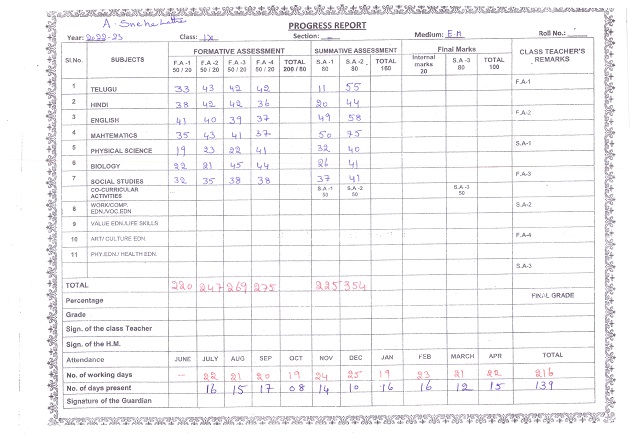 A. Sneha Latha
PROGRESS REPORT
Year: 2022-23 Class: IX Section: Medium: E.M Roll No.:
Sl.No. SUBJECTS FORMATIVE ASSESSMENT SUMMATIVE ASSESSMENT Final Marks CLASS TEACHER'S REMARKS
F.A -1 50 / 20 F.A -2 50 / 20 F.A -3 50 / 20 F.A -4 50 / 20 TOTAL 200 / 80 S.A -1 80 S.A -2 80 TOTAL 160 Internal marks 20 S.A -3 80 TOTAL 100
1 TELUGU 33 43 42 42 11 55 F.A-1
2 HINDI 38 42 42 36 20 44
3 ENGLISH 41 40 39 37 49 58 F.A-2
4 MAHTEMATICS 35 43 41 37 50 75
5 PHYSICAL SCIENCE 19 23 22 41 32 40 S.A-1
6 BIOLOGY 22 21 45 44 26 41
7 SOCIAL STUDIES 32 35 38 38 37 41 F.A-3
CO-CURRICULAR ACTIVITIES S.A -1 50 S.A -2 50 S.A -3 50
8 WORK/COMP. EDN./VOC.EDN S.A-2
9 VALUE EDN./LIFE SKILLS
10 ART/ CULTURE EDN. F.A-4
11 PHY.EDN./ HEALTH EDN.
S.A-3
TOTAL 220 247 269 275 225 354
Percentage FINAL GRADE
Grade
Sign. of the class Teacher
Sign. of the H.M.
Attendance JUNE JULY AUG SEP OCT NOV DEC JAN FEB MARCH APR TOTAL
No. of working days — 22 21 20 19 24 25 19 23 21 22 216
No. of days present 16 15 17 08 14 10 16 16 12 15 139
Signature of the Guardian